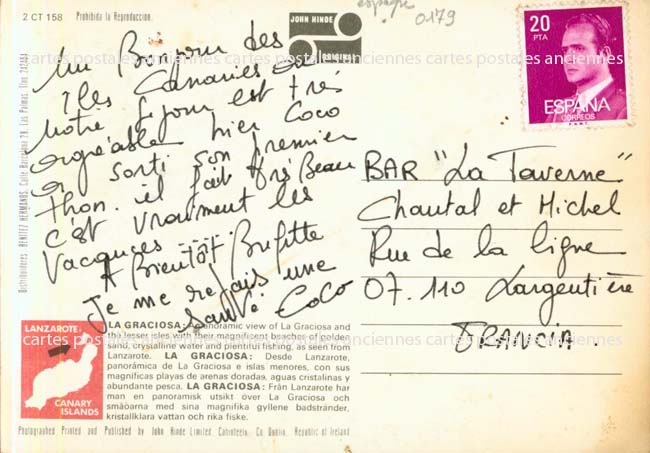 2 CT 158 Prohibida la Reproduccion.
JOHN HINDE
ORIGINAL
espagne 0179
20
PTA
ESPAÑA
CORREOS
Distribuidores BENITEZ HERMANOS, Calle Barcelona 29, Las Palmas, Tfno.
Un Bonjour des
Iles Canaries où
Notre séjour est très
agréable hier Coco
a sorti son premier
thon. il fait très Beau
c'est vraiment les
Vacances ......
A Bientôt Brigitte
Je me refais une
santé Coco
BAR "La Taverne"
Chantal et Michel
Rue de la ligne
07.110 Largentière
FRANCIA.
cartes postales anciennes cartes postales anciennes cartes postales anciennes
LANZAROTE
CANARY
ISLANDS
LA GRACIOSA: Panoramic view of La Graciosa and
the lesser isles with their magnificent beaches of golden
sand, crystalline water and plentiful fishing, as seen from
Lanzarote. LA GRACIOSA: Desde Lanzarote,
panorámica de La Graciosa e islas menores, con sus
magníficas playas de arenas doradas, aguas cristalinas y
abundante pesca. LA GRACIOSA: Från Lanzarote har
man en panoramisk utsikt över La Graciosa och
småöarna med sina magnifika gyllene badstränder,
kristallklara vattan och rika fiske.
Photographed Printed and Published by John Hinde Limited Cabinteely, Co Dublin, Republic of Ireland